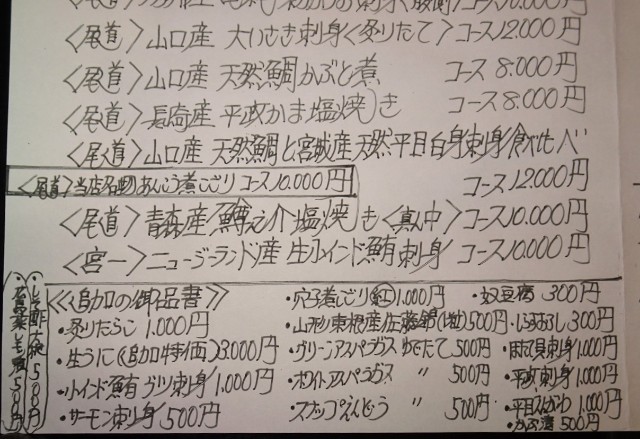 コース10.000円
〈尾道〉山口産 大いさき刺身〈炙りたて〉コース12.000円
〈尾道〉山口産 天然鯛かぶと煮 コース8.000円
〈尾道〉長崎産 平政かま塩焼き コース8.000円
〈尾道〉山口産 天然鯛と宮城産天然平目白身刺身食べ比べ
コース12.000円
〈尾道〉当店名物あんこう煮こごり コース10.000円
〈尾道〉青森産 鱒之介塩焼き〈真ん中〉コース10.000円
〈宮一〉ニュージーランド産 生インド鮪刺身 コース10.000円
《追加の御品書》
・炙りたらこ 1.000円
・生うに〈追加特価〉3.000円
・インド鮪ブツ刺身 1.000円
・サーモン刺身 500円
・穴子煮こごり 1.000円
・山形東根産佐藤錦 500円
・グリーンアスパラガス ゆでたて 500円
・ホワイトアスパラガス 〃 500円
・スナップえんどう 〃 500円
・奴豆腐 300円
・しらすおろし 300円
・ほたて貝刺身 1.000円
・平政刺身 1.000円
・平目えんがわ 1.000円
・かぶ漬 500円
500円
500円